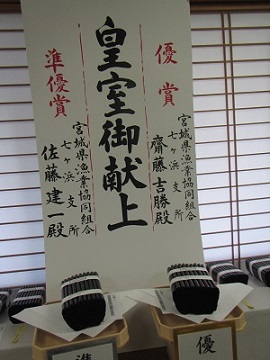 優賞
宮城県漁業協同組合
七ヶ浜支所
齋藤吉勝殿
皇室御献上
準優賞
宮城県漁業協同組合
七ヶ浜支所
佐藤建一殿
優
準